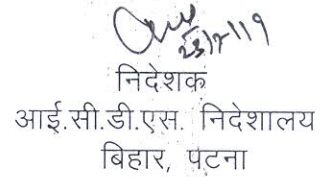 23/7/19
निदेशक
आई.सी.डी.एस. निदेशालय
बिहार, पटना